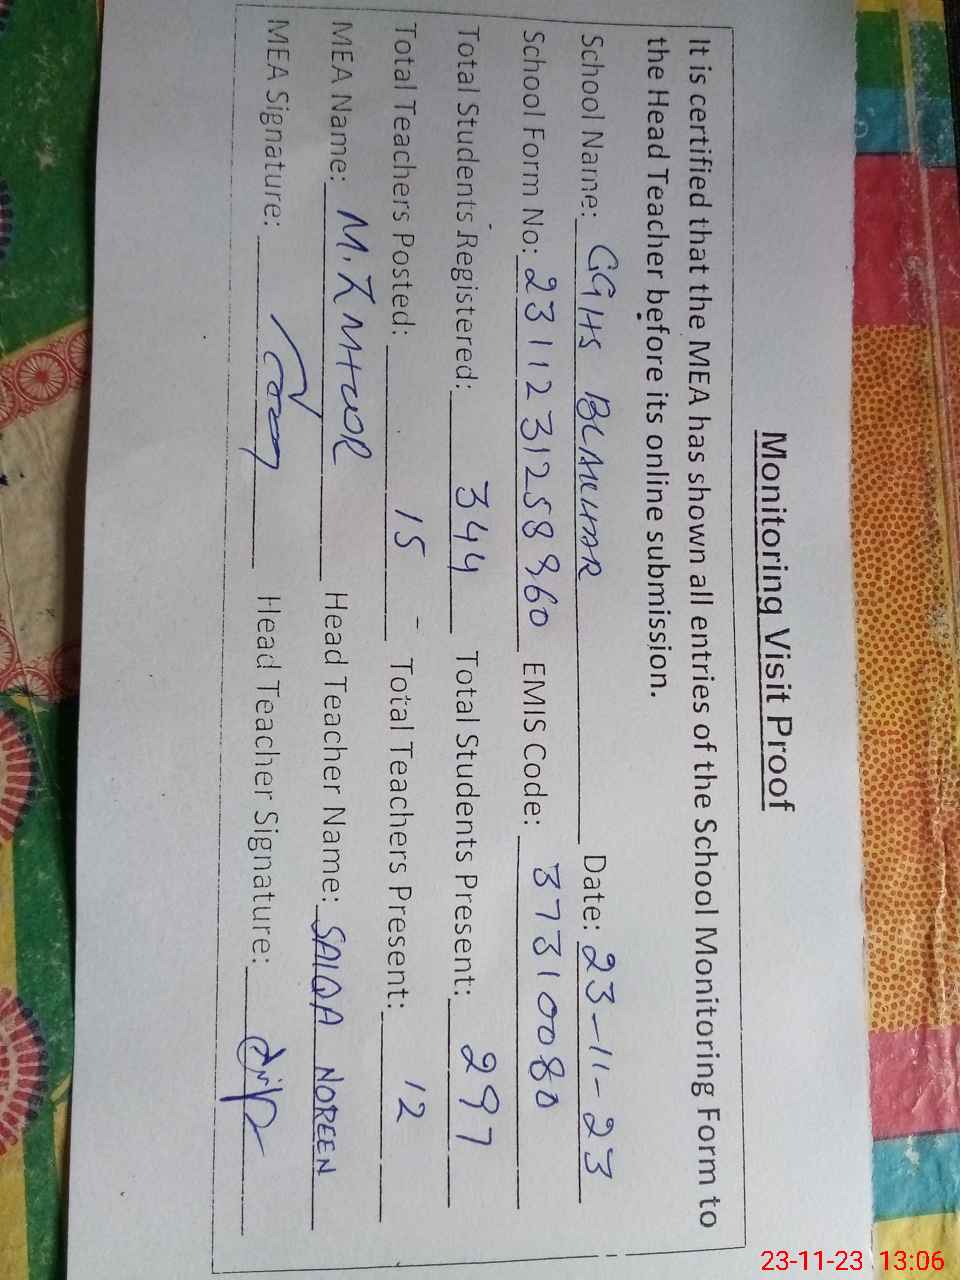 Monitoring Visit Proof
It is certified that the MEA has shown all entries of the School Monitoring Form to
the Head Teacher before its online submission.
School Name: GGHS Date: 23-11-23
School Form No: 2311231258960 EMIS Code: 37310080
Total Students Registered: 344 Total Students Present: 297
Total Teachers Posted: 15 Total Teachers Present: 12
MEA Name: M. Head Teacher Name: SAIQA NOREEN
MEA Signature: Head Teacher Signature:
23-11-23 13:06